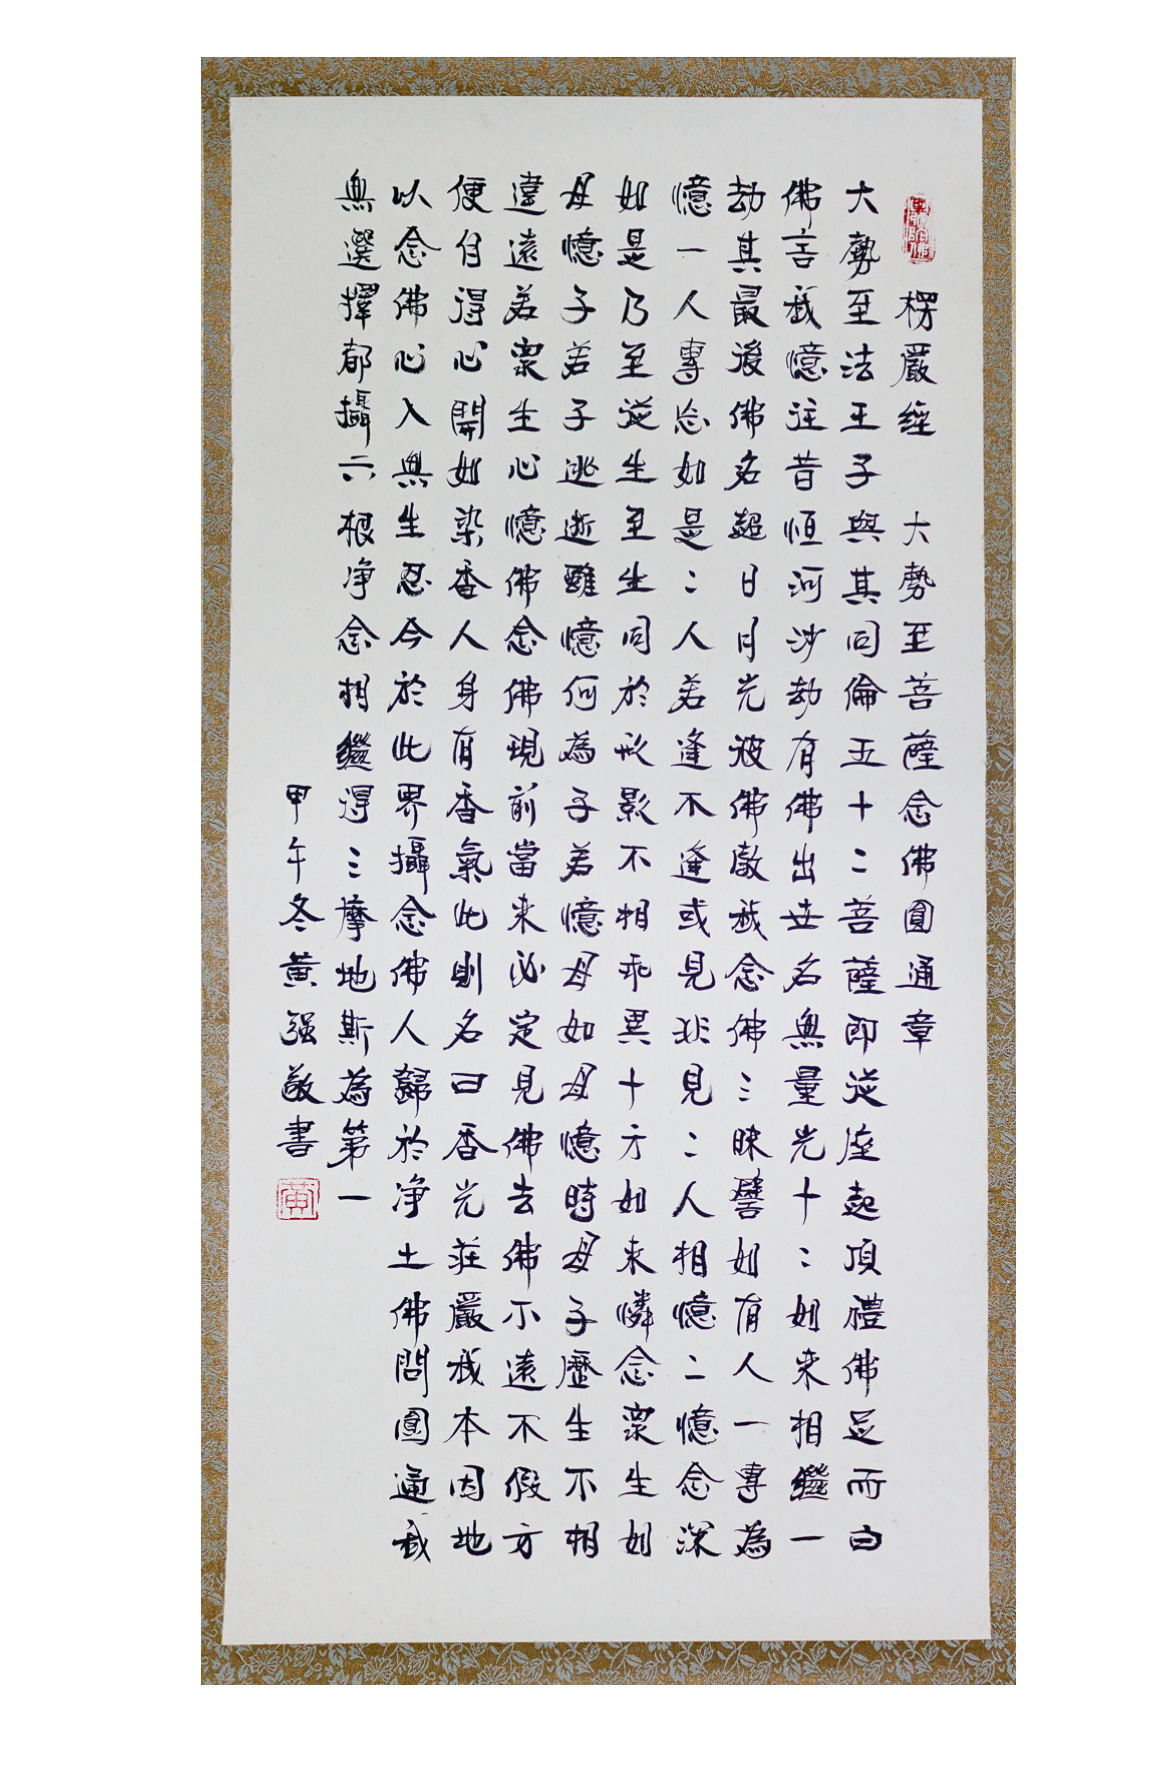 楞嚴經 大勢至菩薩念佛圓通章
大勢至法王子與其同倫五十二菩薩即從座起頂禮佛足而白
佛言我憶往昔恒河沙劫有佛出世名無量光十二如来相繼一
劫其最後佛名超日月光彼佛教我念佛三昧譬如有人一專為
憶一人專忘如是二人若逢不逢或見非見二人相憶二憶念深
如是乃至從生至生同於形影不相乖異十方如来憐念衆生如
母憶子若子逃逝雖憶何為子若憶母如母憶時母子歷生不相
違遠若衆生心憶佛念佛現前當来必定見佛去佛不遠不假方
便自得心開如染香人身有香氣此則名曰香光莊嚴我本因地
以念佛心入無生忍今於此界攝念佛人歸於净土佛問圓通我
無選擇都攝六根净念相繼得三摩地斯為第一
甲午冬黃强敬書
黃